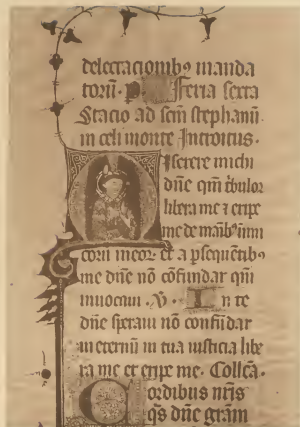 delectacionibꝰ manda
torũ. p. Feria sexta
Stacio ad scm̃ stephanũ
in celi monte Introitus.
Miserere michi
dñe qm̃ tribulor
libera me ⁊ eripe
me de manibꝰ inimi
corũ meor et a psequẽtibꝰ
me dñe nõ cõfundar qm̃
inuocaui. V. In te
dñe speraui nõ confũdar
in eternũ in tua iusticia libe
ra me et eripe me. Collẽa.
Cordibus nr̃is
qs̃ dñe gram̃